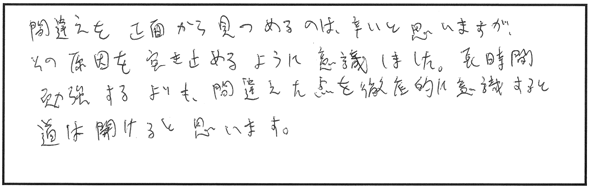 間違えを正面から見つめるのは、辛いと思いますが、
その原因を突き止めるように意識しました。長時間
勉強するよりも、間違えた点を徹底的に意識すると
道は開けると思います。